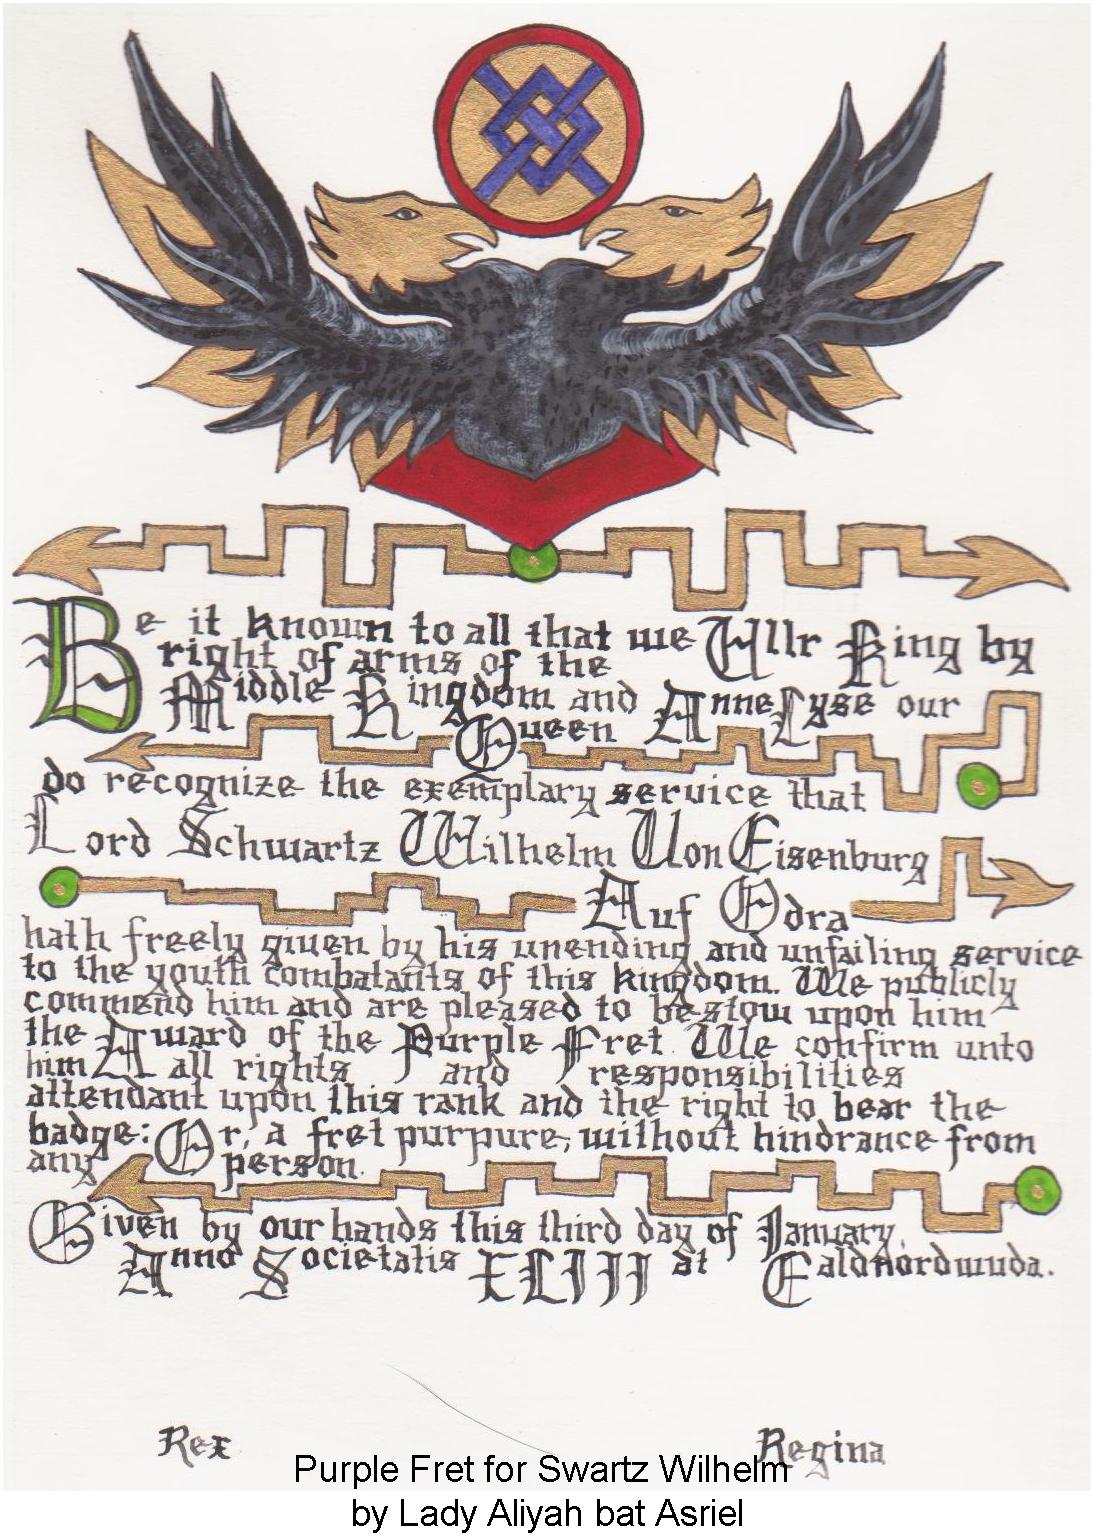 Be it known to all that we Ullr King by
right of arms of the
Middle Kingdom and AnneLyse our
Queen
do recognize the exemplary service that
Lord Schwartz Wilhelm Von Eisenburg
Auf Odra
hath freely given by his unending and unfailing service
to the youth combatants of this kingdom. We publicly
commend him and are pleased to bestow upon him
the Award of the Purple Fret. We confirm unto
him all rights and responsibilities
attendant upon this rank and the right to bear the
badge: Or, a fret purpure, without hindrance from
any person.
Given by our hands this third day of January,
Anno Societatis XLIII at Ealdnordwuda.
Rex Regina
Purple Fret for Swartz Wilhelm
by Lady Aliyah bat Asriel